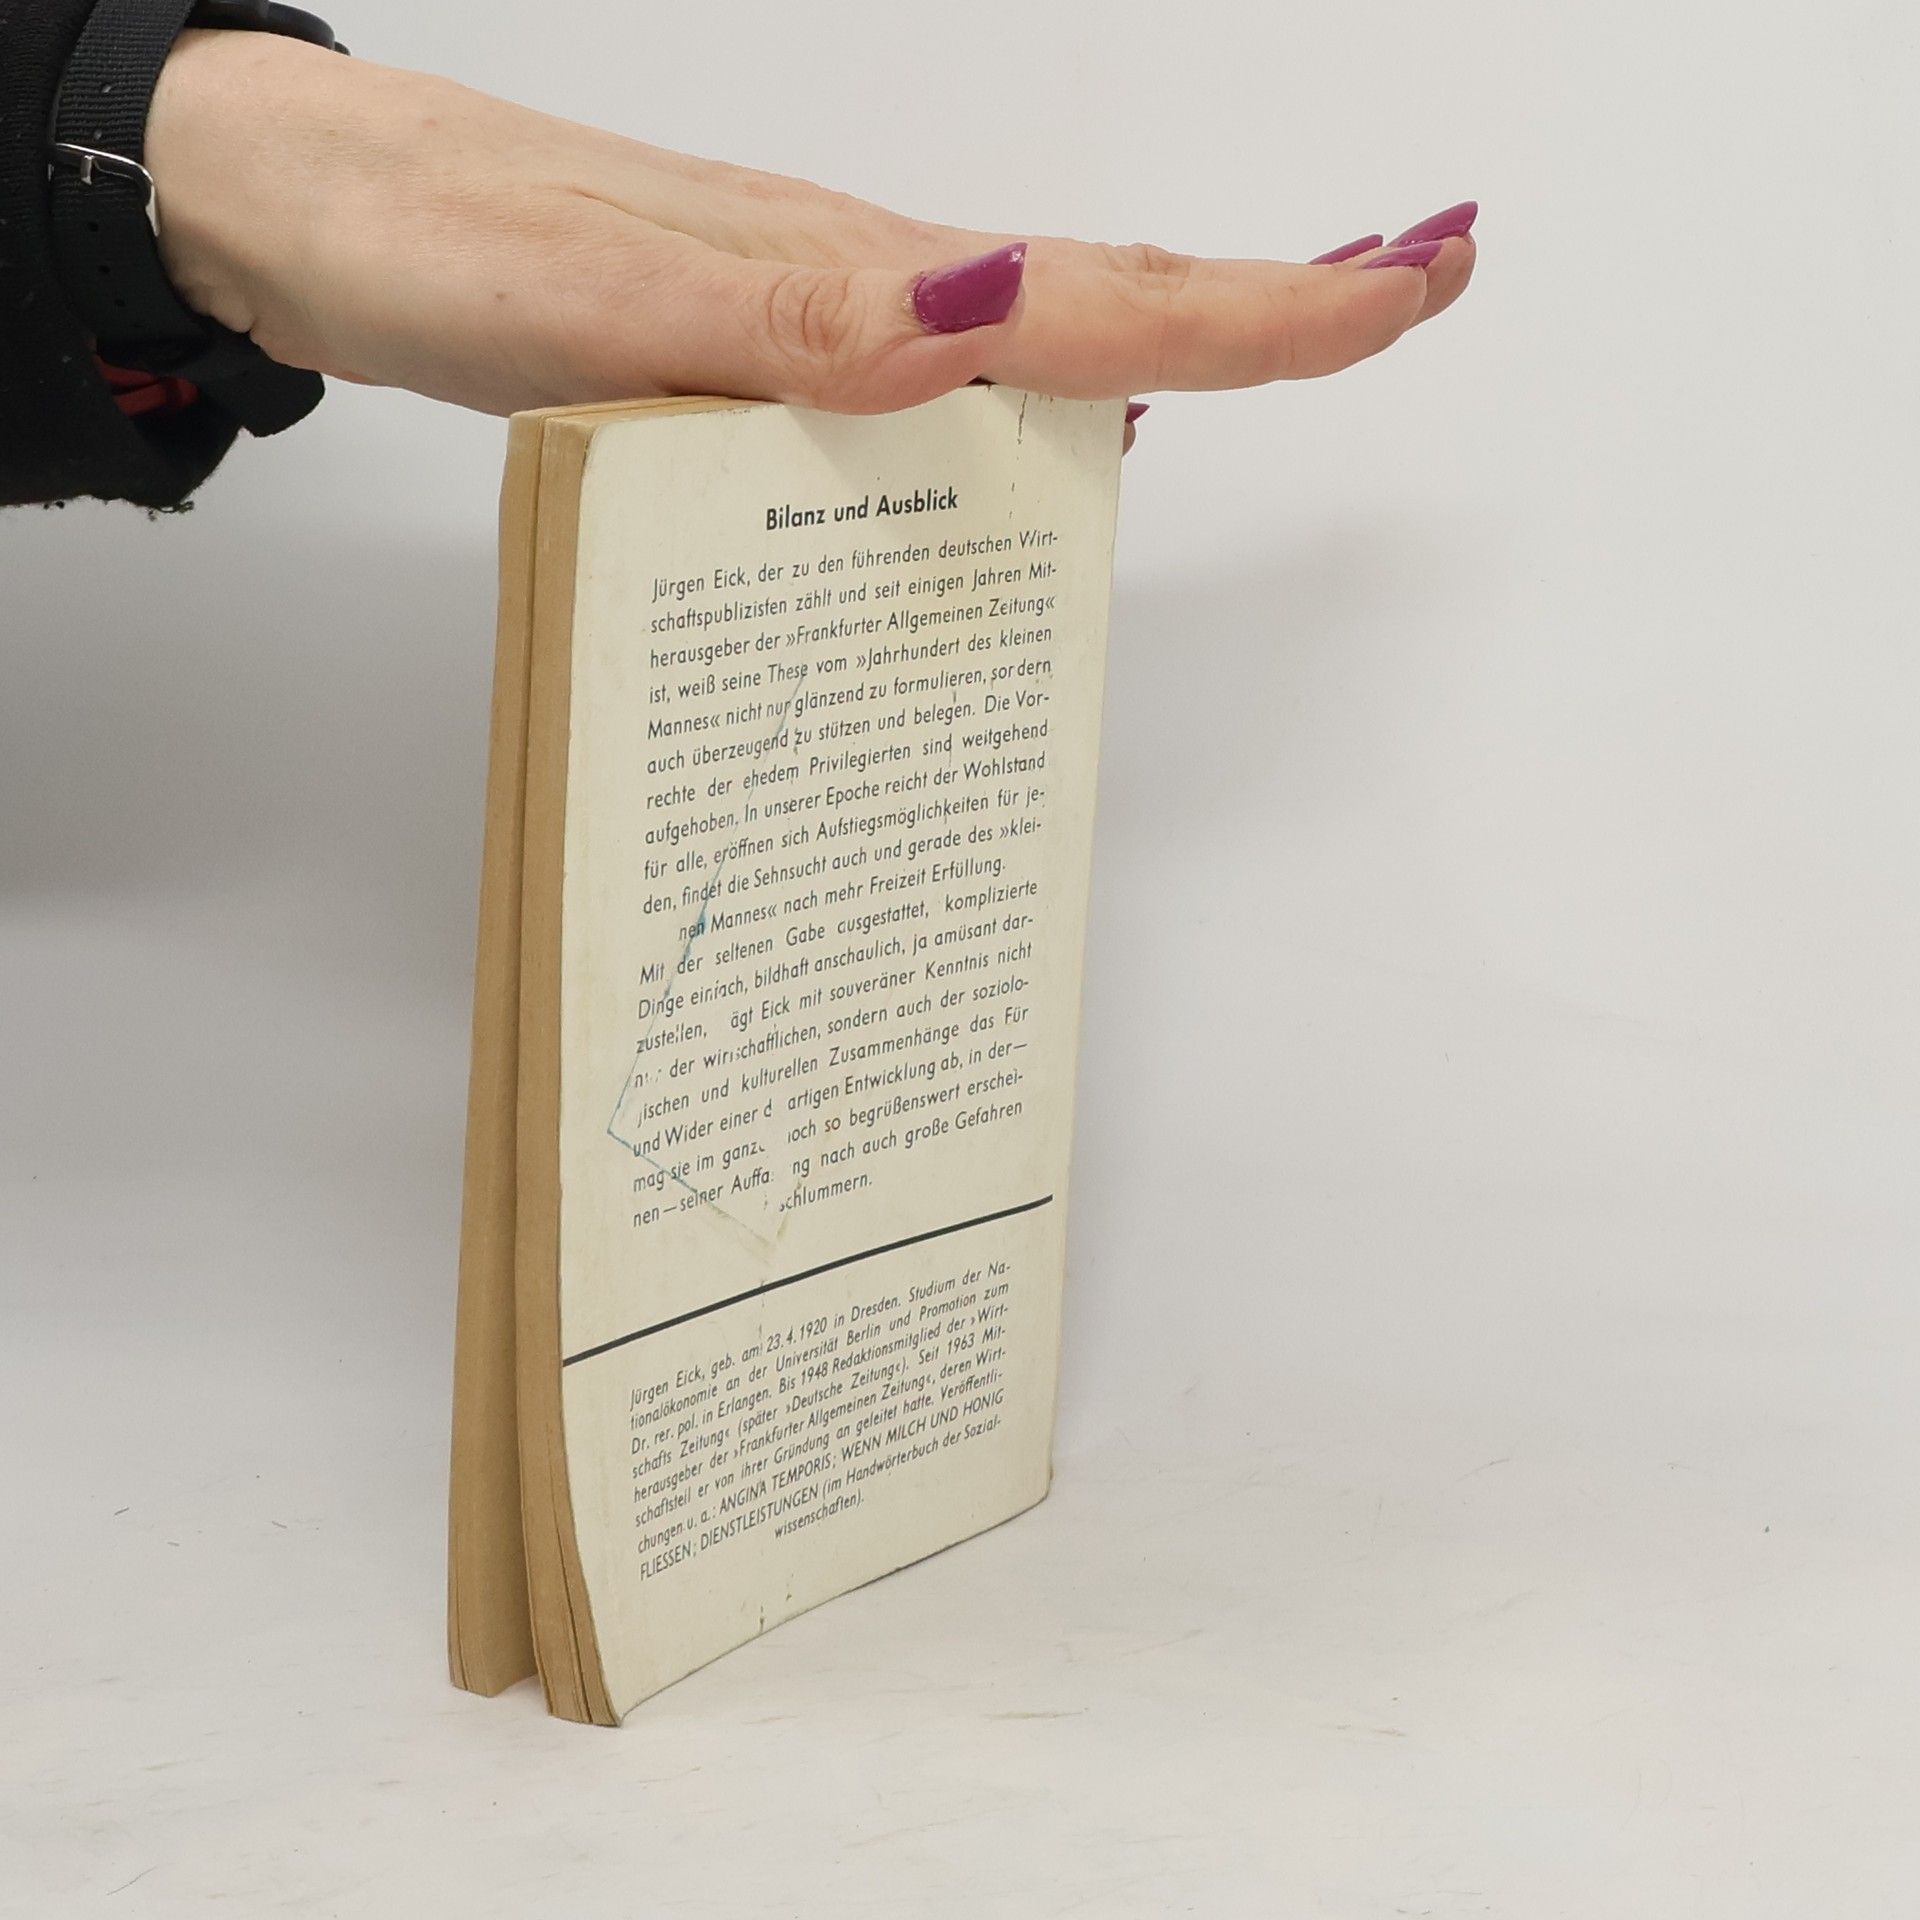 Bilanz und Ausblick
Jürgen Eick, der zu den führenden deutschen Wirt-
schaftspublizisten zählt und seit einigen Jahren Mit-
herausgeber der »Frankfurter Allgemeinen Zeitung«
ist, weiß seine These vom »Jahrhundert des kleinen
Mannes« nicht nur glänzend zu formulieren, sondern
auch überzeugend zu stützen und belegen. Die Vor-
rechte der ehedem Privilegierten sind weitgehend
aufgehoben. In unserer Epoche reicht der Wohlstand
für alle, eröffnen sich Aufstiegsmöglichkeiten für je-
den, findet die Sehnsucht auch und gerade des »klei-
nen Mannes« nach mehr Freizeit Erfüllung.
Mit der seltenen Gabe ausgestattet, komplizierte
Dinge einfach, bildhaft anschaulich, ja amüsant dar-
zustellen, ägt Eick mit souveräner Kenntnis nicht
der wirtschaftlichen, sondern auch der soziolo-
gischen und kulturellen Zusammenhänge das Für
und Wider einer d artigen Entwicklung ab, in der—
mag sie im ganz och so begrüßenswert erschei-
nen — seiner Auffa ng nach auch große Gefahren
schlummern.
Jürgen Eick, geb. am 23.4.1920 in Dresden. Studium der Na-
tionalökonomie an der Universität Berlin und Promotion zum
Dr. rer. pol. in Erlangen. Bis 1948 Redaktionsmitglied der ›Wirt-
schafts Zeitung‹ (später ›Deutsche Zeitung‹). Seit 1963 Mit-
herausgeber der ›Frankfurter Allgemeinen Zeitung‹, deren Wirt-
schaftsteil er von ihrer Gründung an geleitet hatte. Veröffentli-
chungen u. a.: ANGINA TEMPORIS; WENN MILCH UND HONIG
FLIESSEN; DIENSTLEISTUNGEN (im Handwörterbuch der Sozial-
wissenschaften).